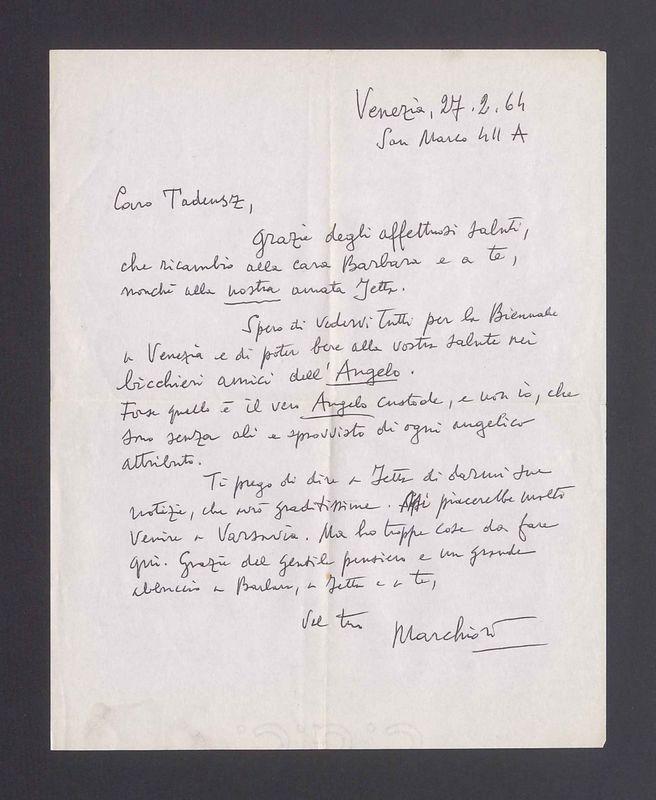 Venezia, 27.2.64
San Marco 411 A
Caro Tadeusz,
grazie degli affettuosi saluti,
che ricambio alla cara Barbara e a te,
nonché alla nostra amata Jetta.
Spero di vedervi tutti per la Biennale
a Venezia e di poter bere alla vostra salute nei
bicchieri amici dell'Angelo.
Forse quello è il vero Angelo custode, e non io, che
sono senza ali e sprovvisto di ogni angelico
attributo.
Ti prego di dire a Jetta di darmi sue
notizie, che avrò graditissime. Mi piacerebbe molto
venire a Varsavia. Ma ho troppe cose da fare
qui. Grazie del gentile pensiero e un grande
abbraccio a Barbara, a Jetta e a te,
del tuo
Marchiori